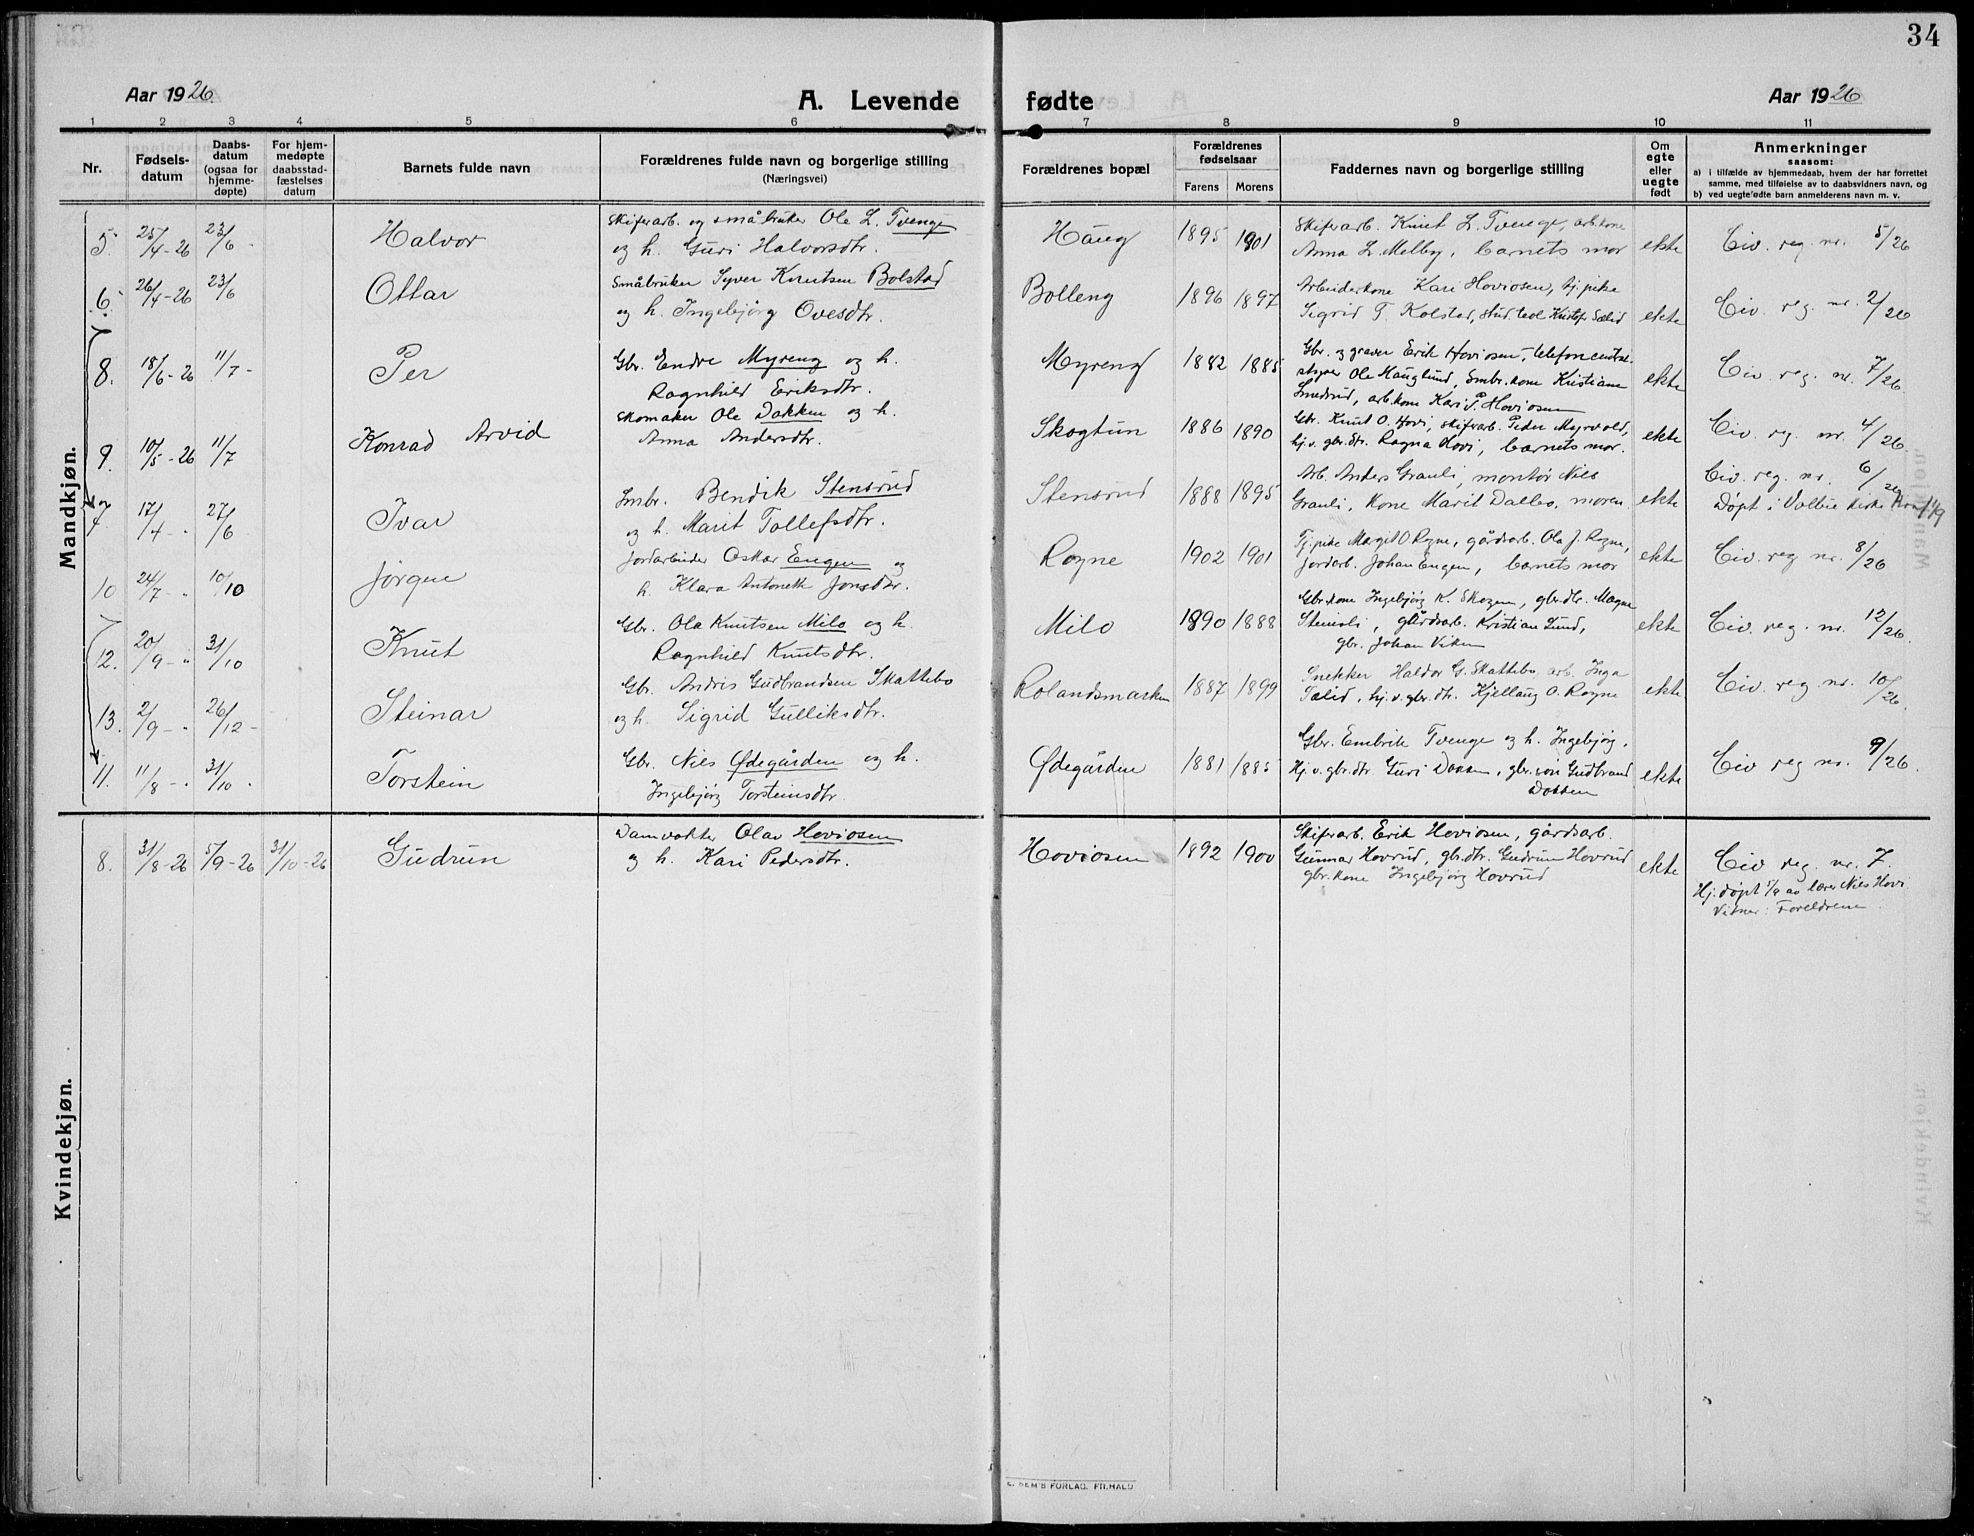 34
Aar 1926.
A. Levende fødte
Aar 1926
1 2 3 4 5 6 7 8 9 10 11
Nr.
Fødsels-
datum
Daabs-
datum
(ogsaa for
hjemme-
døpte)
For hjem-
medøpte
daabsstad-
fæstelses
datum
Barnets fulde navn
Forældrenes fulde navn og borgerlige stilling
(Næringsvei)
Forældrenes bopæl
Forældrenes
fødselsaar
Farens Morens
Faddernes navn og borgerlige stilling
Om
egte
eller
uegte
født
Anmerkninger
saasom:
a) i tilfælde av hjemmedaab, hvem der har forrettet
samme, med tilføielse av to daabsvidners navn, og
b) ved uegte fødte barn anmelderens navn m. v.
Mandkjøn.
5. 25/4-26 23/6 Halvor
Skiferarb. og småbruker Ole L. Tvenge
og h. Guri Halvorsdtr.
Haug 1895 1901
Skiferarb. Knut L. Tvenge, arb.kone
Anna L. Melby, barnets mor
ekte Civ. reg. nr. 5/26
6. 26/4-26 23/6 Ottar
Småbruker Syver Knutsen Bolstad
og h. Ingebjørg Ovesdtr.
Bolleng 1896 1897
Arbeiderkone Kari Hoviosen, tj.pike
Sigrid T. Kolstad, stud. teol. Kristofr Sælid
ekte Civ. reg. nr. 2/26
8. 18/6-26 11/7- Per
Gbr. Endre Myreng og h.
Ragnhild Eriksdtr.
Myreng 1882 1885
Gbr. og graver Erik Hoviosen, telefoncentral-
styrer Ole Hauglund, Smbr.kone Kristiane
Smedrud, arb.kone Kari P. Hoviosen
ekte Civ. reg. nr. 7/26
9. 10/5-26 11/7 Konrad Arvid
Skomaker Ole Dokken og h.
Anna Andersdtr.
Skogtun 1886 1890
Gbr. Knut O. Hovi, skiferarb. Peder Myrvold,
hj.v. gbr.dtr. Ragna Hovi, barnets mor.
ekte Civ. reg. nr. 4/26.
7 17/4 - " 27/6 Ivar
Smbr. Bendik Stensrud
og h. Marit Tollefsdtr.
Stensrud 1888 1895
Arb. Anders Grauli, montør Nils
Grauli, Kone Marit Dalbo, moren
ekte Civ. reg. nr. 6/26
Døpt i Volbu kirke
10 24/7 - " 10/10 Jørgen
Jordarbeider Oskar Engen og
h. Klara Antonette Jonsdtr.
Rogne 1902 1901
Tj.pike Margit O Rogne, gårdsarb. Ola J. Rogne,
jordarb. Johan Engen, barnets mor
ekte Civ. reg nr. 8/26
12. 20/9 - " 31/10 Knut
Gbr. Ola Knutsen Milo og h.
Ragnhild Knutsdtr.
Milo 1890 1888
Gbr.kone Ingebjørg K. Skogen, gbr.dtr. Magne
Stensli, gårdsarb. Kristian Lund,
gbr. Johan Viken
ekte Civ. reg. nr. 12/26.
13. 2/9 - " 26/12 - Steinar
Gbr. Andris Gudbrandsen Skattebo
og h. Sigrid Gulliksdtr.
Rolandsmarken 1887 1899
Snekker Haldor G. Skattebo, arb. Inga
Sælid, hj.v. gbr.dtr. Kjellaug O. Rogne
ekte Civ. reg. nr. 10/26.
11. 11/8 - " 31/10 . Torstein
Gbr. Nils Ødegården og h.
Ingebjørg Torsteinsdtr
Ødegården 1881 1885
Gbr. Embrik Tvenge og h. Ingebjørg,
Hj.v. gbr.dtr Guri Dokken, gbr.søn Gudbrand
Dokken
ekte Civ reg nr. 9/26.
Kvindekjøn.
8. 31/8-26 5/9-26 31/10-26 Gudrun
Damvokter Olav Hoviosen
og h. Kari Pedersdtr.
Hoviosen 1892 1900
Skiferarb. Erik Hoviosen, gårdsarb.
Gunnar Hovrud, gbr.dtr. Gudrun Hovrud
gbr.kone Ingebjørg Hovrud
ekte Civ reg. nr. 7.
Hj.døpt 5/9 av lærer Nils Hovi
Vitner: Foreldrene.